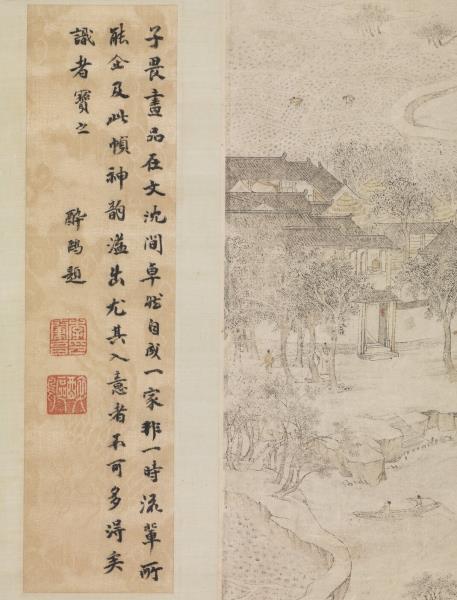 子畏畫品在文沈間卓然自成一家非一時流輩所
能企及此幀神韵溢出尤其入意者不可多得矣
識者寶之
酔鷗題